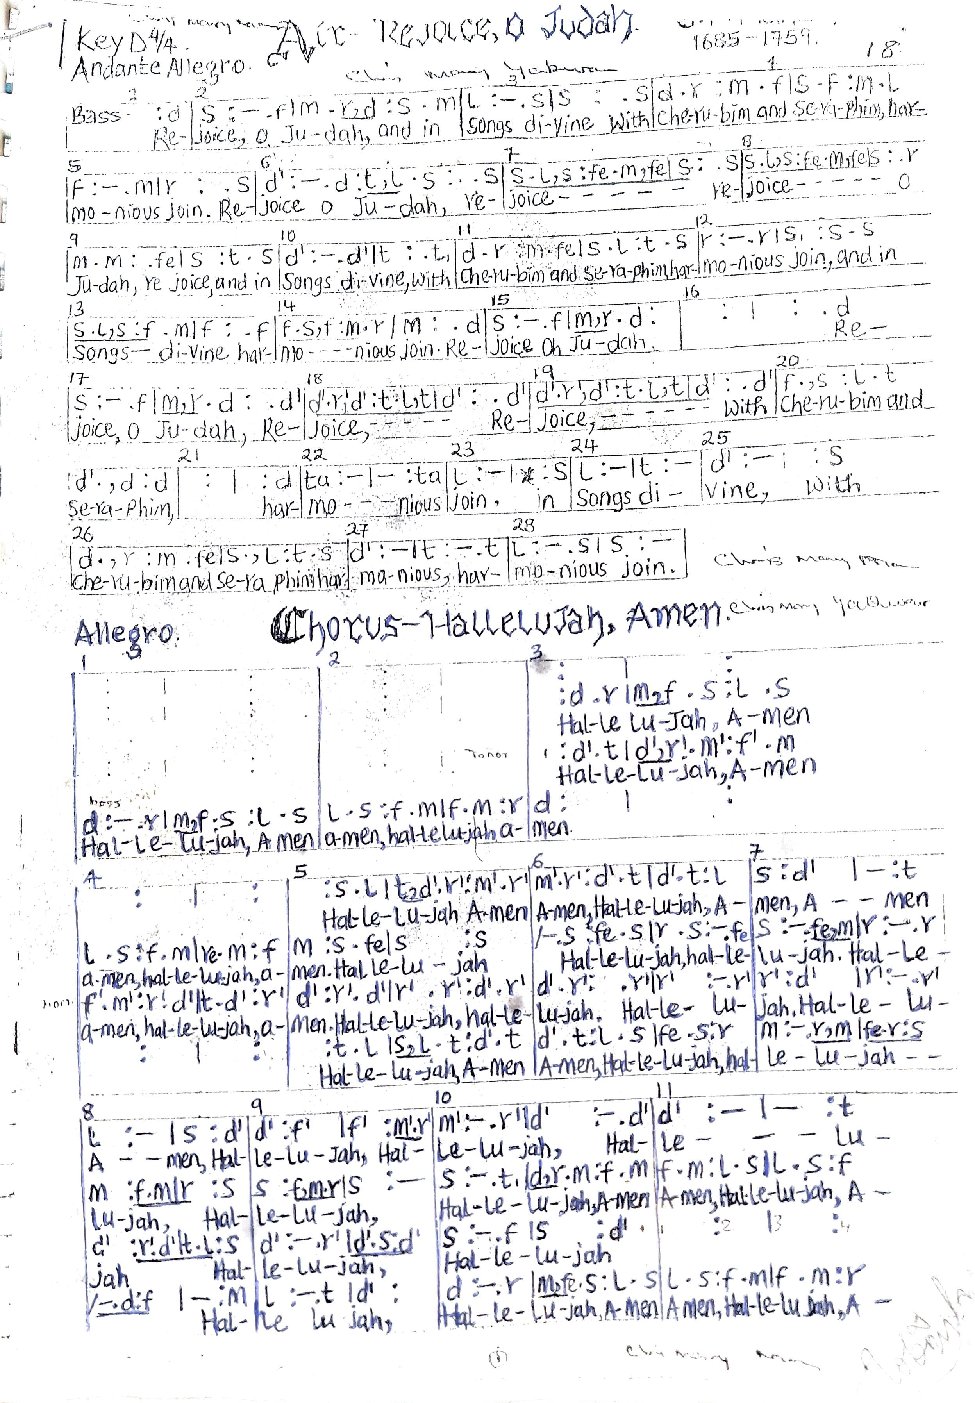 Key D 4/4.
Air- Rejoice, O Judah.
1685-1759.
Andante Allegro.
18
Bass :d |S :-.f|m.r,d :S.m|L :-.S|S : .S|d.r :m.f|S.F :m.L
Re-joice, O Ju-dah, and in Songs di-vine with che-ru-bim and Se-ra-phim, har-
5 6 7 8
|f :-.m|r : .S|d' :-.d :t,L.S : .S|S.L,S :fe.m,fe|S : .S|S.L,S :fe.m,fe|S : .r
mo-nious join. Re-joice O Ju-dah, re-joice- - - - - re-joice- - - - - O
9 10 11 12
m.m : .fe|S :t.S|d' :-.d'|t : .t,|d.r :m.fe|S.L :t.S|r :-.r|S, :S.S
Ju-dah, re joice, and in Songs di-vine, with Che-ru-bim and Se-ra-phim har-mo-nious join, and in
13 14 15 16
S.L,S :f.m|f : .f|f.S,f :m.r|m : .d|S :-.f|m,r.d : | : | : .d
Songs- di-vine har-mo- - -nious join. Re-joice Oh Ju-dah. Re-
17 18 19 20
S :-.f|m,r.d : .d'|d'.r',d' :t.L,t|d' : .d'|d'.r',d' :t.L,t|d' : .d'|f.,S :L.t
joice, O Ju-dah, Re-joice,- - - - - Re-joice,- - - - - - with Che-ru-bim and
21 22 23 24 25
|d'.,d :d | : | :d|ta :-|- :ta|L :-| :S|L :-|t :-|d' :- | :S
Se-ra-Phim, har-mo- - -nious join. in Songs di-vine, with
26 27 28
d.,r :m.fe|S.,L :t.S|d' :-|t :-.t|L :-.S|S :-
Che-ru-bim and Se-ra phim har mo-nious, har-mo-nious join.
Allegro.
Chorus-Hallelujah, Amen.
1 2 3
:d.r|m,f.S :L.S
Hal-le lu-Jah, A-men
Tenor
:d'.t|d',r'.m' :f'.m
Hal-le-lu-jah, A-men
bass
d :-.r|m,f.S :L.S|L.S :f.m|f.m :r|d :
Hal-le-lu-jah, Amen a-men, hal-lelujah a-men.
4 5 6 7
:S.L|t,d'.r' :m'.r'|m'.r' :d'.t|d'.t :L|S :d' |- :t
Hal-le-lu-jah A-men A-men, Hal-le-lu-jah, A-men, A - - men
L.S :f.m|re.m :f|m :S.fe|S :S|/-.S :fe.S|r.S :-.fe|S :-.fe,m|r :-.r
a-men, hal-le-lu-jah, a-men. Hal le-lu-jah Hal-le-lu-jah, hal-le-lu-jah. Hal-Le-
f'.m' :r'.d'|t.d' :r'|d' :r'.d'|r'.r' :d'.r'|d'.r' : .r'|r' :-.r'|r' :d' |r' :-.r'
a-men, hal-le-lu-jah, a-men. Hal-le-lu-jah, hal-le-lujah. Hal-le- lu-jah. Hal-le- lu-
:t.L|S,L.t :d'.t|d'.t :L.S|fe.S :r|m :-.r,m|fe.r :S
Hal-le-lu-jah, A-men A-men, Hal-le-lu-jah, hal-le-lu-jah- -
8 9 10 11
L :-|S :d'|d' :f' |f' :m'.r'|m' :-.r'|d' :-.d'|d' :-|- :t
A - - men, Hal-le-lu-Jah, Hal-Le-lu-jah, Hal-le - - - lu-
m :f.m|r :S|S :f.m.r|S :-|S :-.t,|d,r.m :f.m|f.m :L.S|L.S :f
lu-jah, Hal-le-lu-jah, Hal-le-lu-jah, A-men A-men, Hal-le-lu-jah, A-
d' :r'.d'|t.L :S|d' :-.r'|d'.S :d'|S :-.f|S :d'
jah Hal-le-lu-jah, Hal-le-lu-jah
/-.d :f |- :m|L :-.t|d' : |d :-.r|m,fe.S :L.S|L.S :f.m|f.m :r
Hal-le lu jah, Hal-le-lu-jah, A-men A men, Hal-le-lu jah, A-
(1)